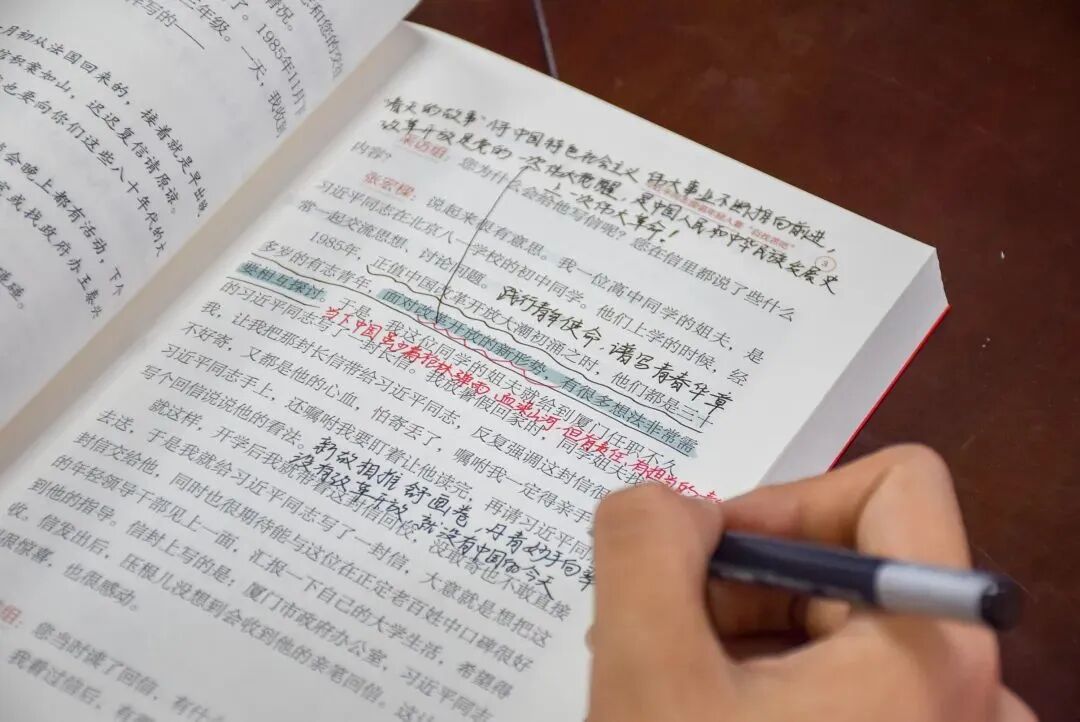 和您的交
情况。
了。1985年11月下
三年级。一天，我收
写的——
月初从法国回来的，接着就是早出晚
官积案如山，迟迟复信请原谅。
也要向你们这些八十年代的大
晚上都有活动，下个
室或找政府办王泰兴
瑾瑾。
"春天的故事"使中国特色社会主义伟大事业不断推向前进，
改革开放是党的一次伟大觉醒，是中国人民和中华民族发展史
上一次伟大革命！
"自找苦吃"
采访组：您为什么会给他写信呢？您在信里都说了些什么
内容？
张宏樑：说起来很有意思。我一位高中同学的姐夫，是
习近平同志在北京八一学校的初中同学。他们上学的时候，经
常一起交流思想、讨论问题。
践行青年使命，谱写青春华章
1985年，正值中国改革开放大潮初涌之时，他们都是三十
多岁的有志青年，面对改革开放的新形势，有很多想法非常需
要相互探讨。于是，我这位同学的姐夫就给到厦门任职不久
当下中国虽少有枪林弹雨，血染山河，但有责任有担当的青
的习近平同志写了一封长信。我放暑假回家时，同学姐夫找
我，让我把那封长信带给习近平同志，反复强调这封信很
不好寄，又都是他的心血，怕寄丢了，嘱咐我一定得亲手
习近平同志手上，还嘱咐我要盯着让他读完，再请习近平同
写个回信说说他的看法。
新故相推舒画卷，丹青妙手向翠
没有改革开放，就没有中国的今天
就这样，开学后我就带着这封信回校，没敢寄也不敢直接
去送，于是我就给习近平同志写了一封信，大意就是想把这
封信交给他，同时也很期待能与这位在正定老百姓中口碑很好
的年轻领导干部见上一面，汇报一下自己的大学生活，希望得
到他的指导。信封上写的是：厦门市政府办公室，习近平同志
收。信发出后，压根儿没想到会收到他的亲笔回信。这
很惊喜，也很感动。
组：您当时读了回信，有什么
我看过信后，有